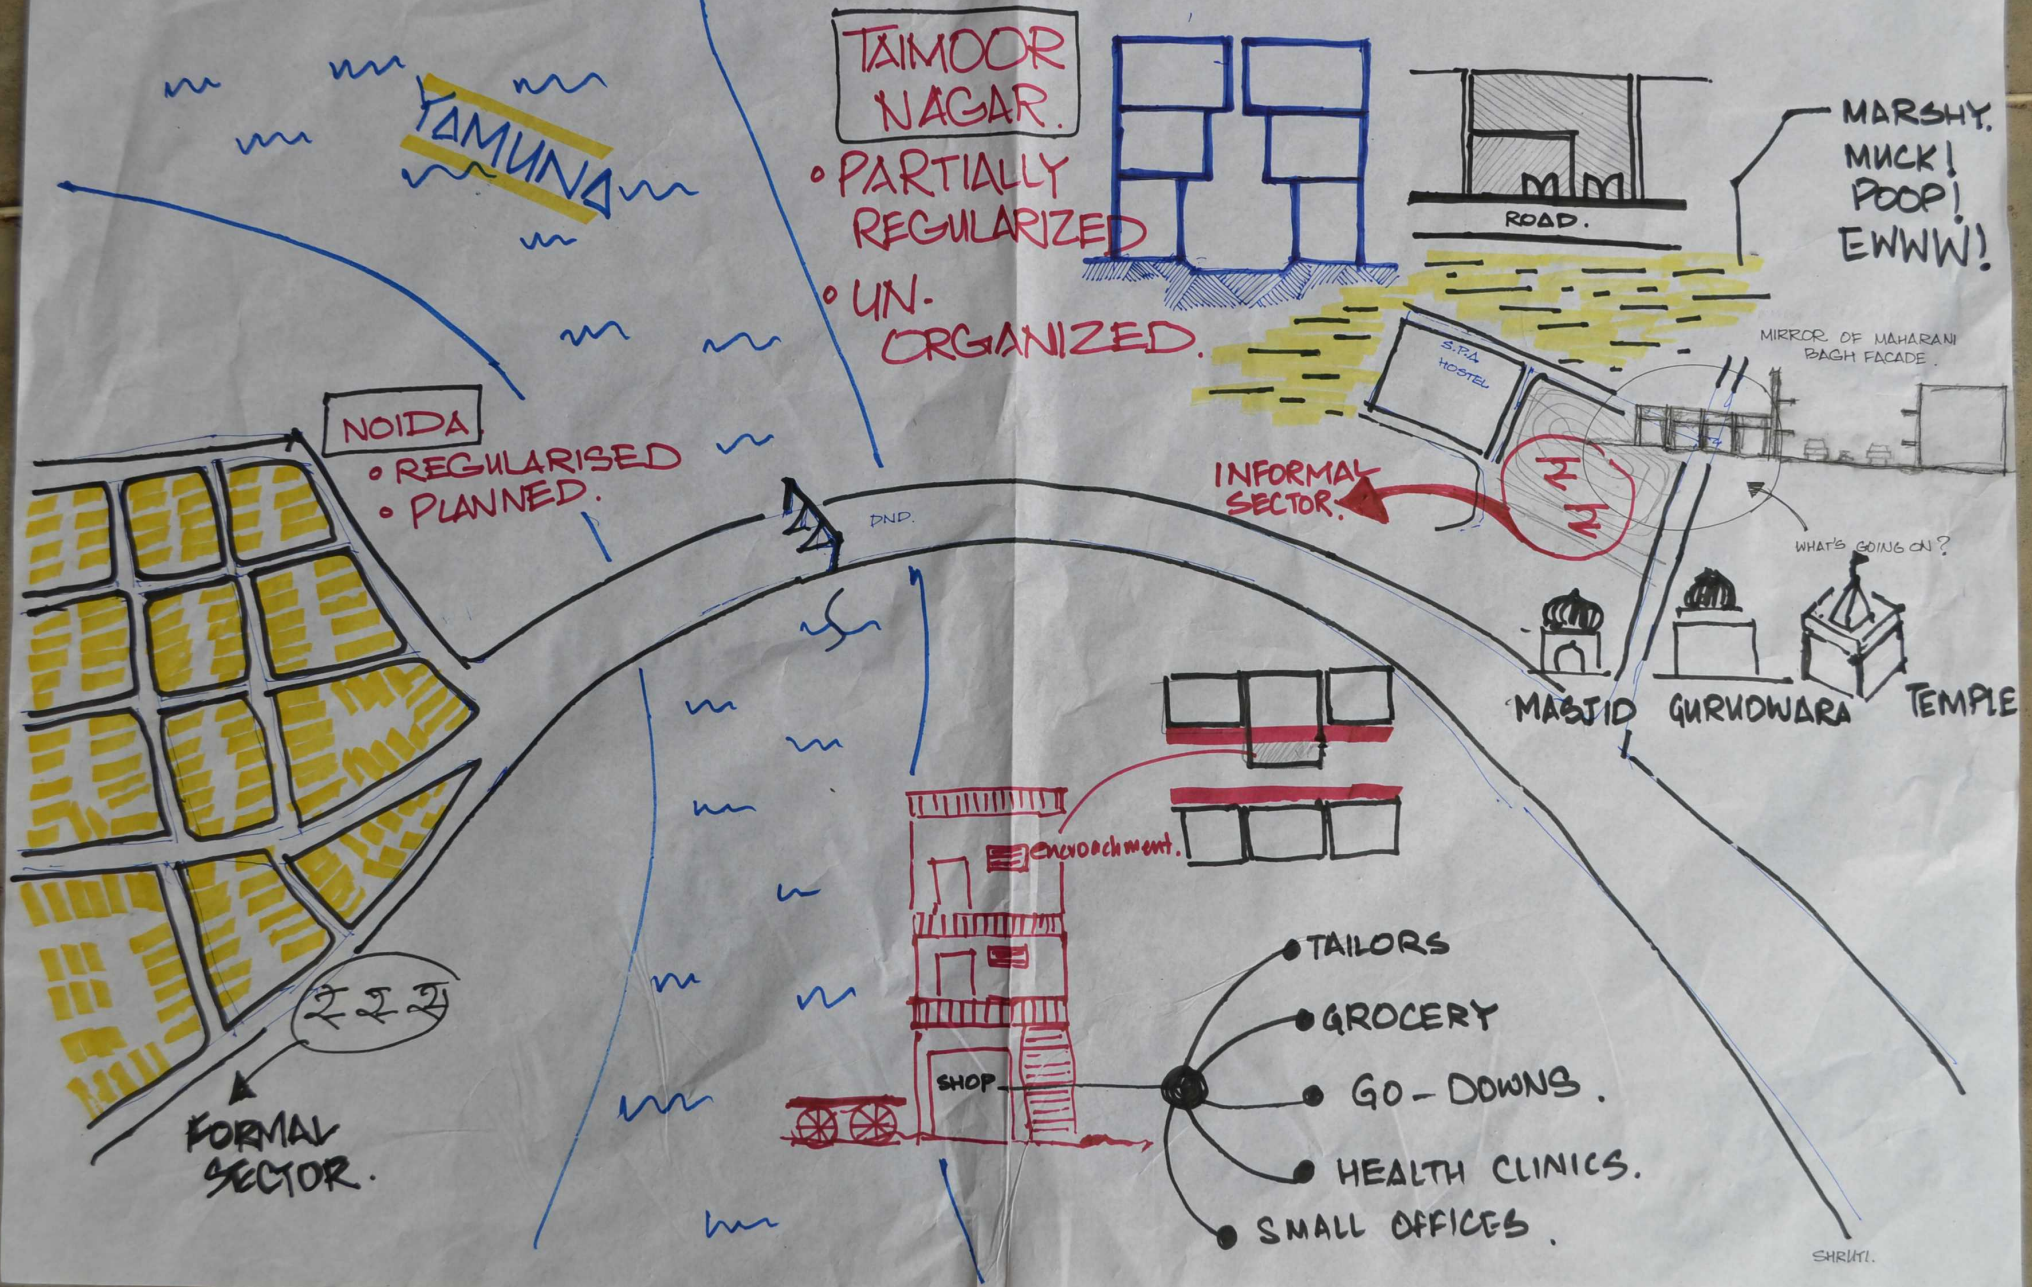 TAIMOOR
NAGAR.
• PARTIALLY
REGULARIZED
• UN-
ORGANIZED.
YAMUNA
ROAD.
MARSHY.
MUCK!
POOP!
EWWW!
MIRROR OF MAHARANI
BAGH FACADE.
S.P.A
HOSTEL
NOIDA
• REGULARISED
• PLANNED.
DND.
INFORMAL
SECTOR.
WHAT'S GOING ON?
MASJID
GURUDWARA
TEMPLE
encroachment.
SHOP
TAILORS
GROCERY
GO-DOWNS.
HEALTH CLINICS.
SMALL OFFICES.
FORMAL
SECTOR.
SHRUTI.